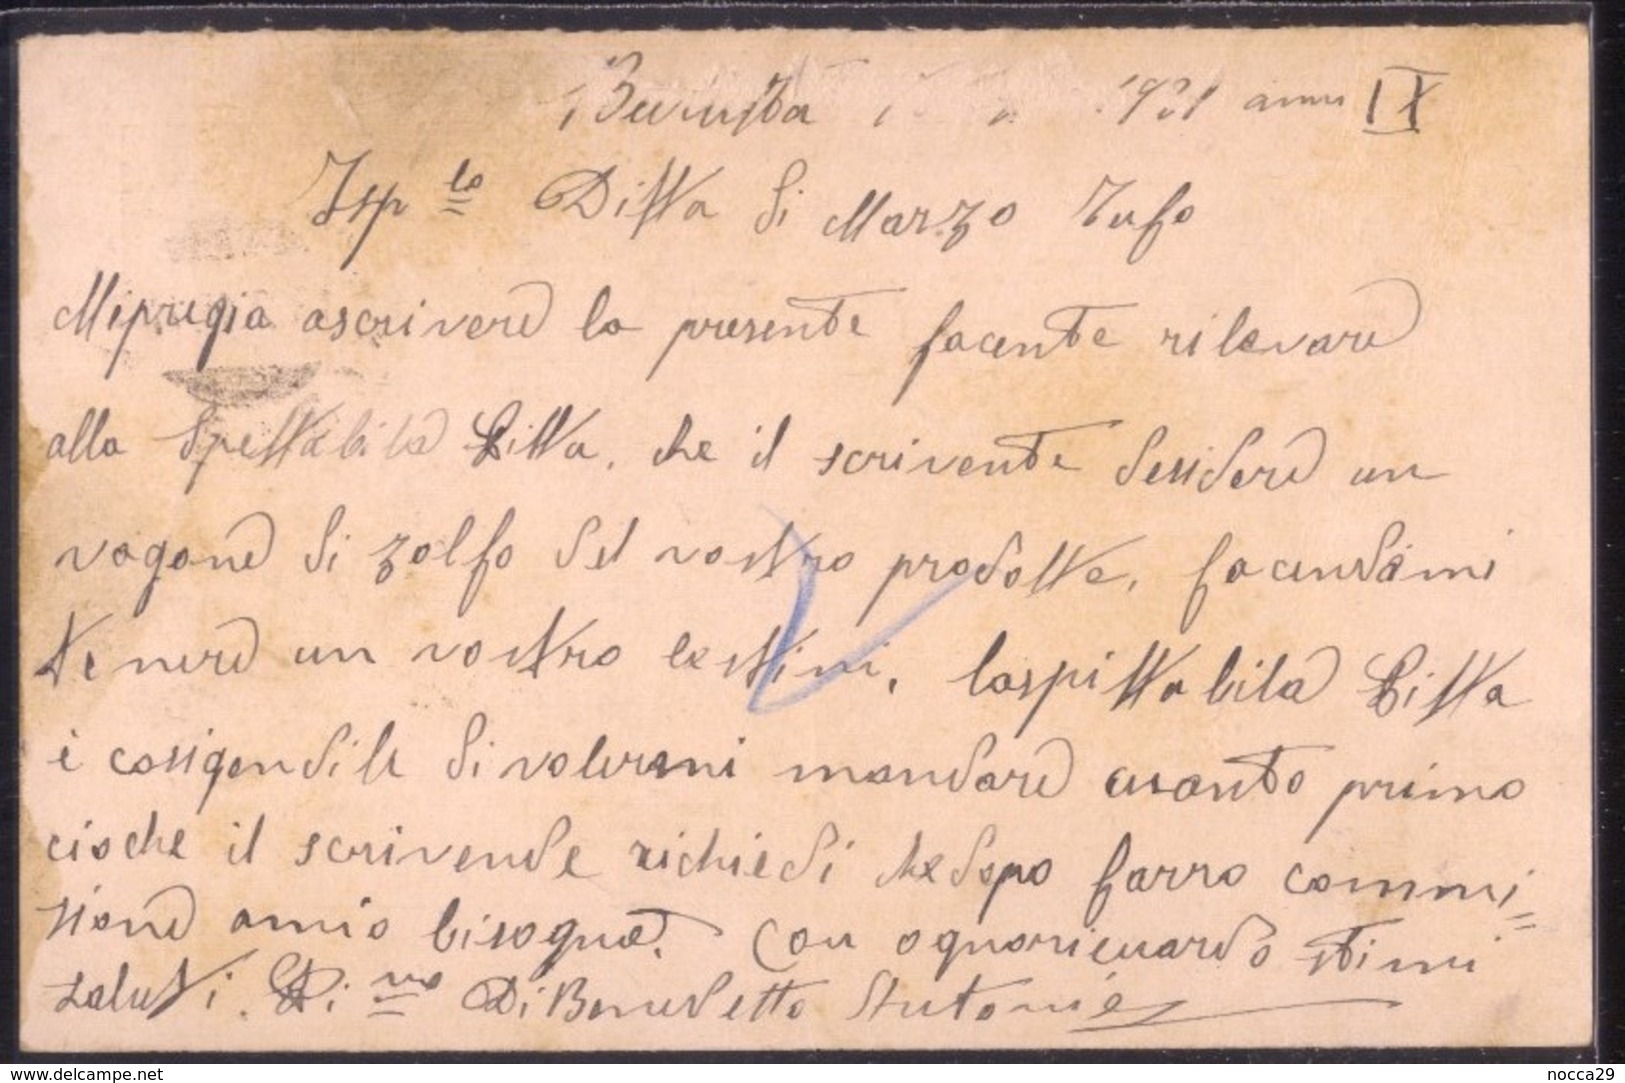 1931 anno IX
Isp lo Ditta di Marzo Tufo
Mipregia ascrivere la presente facente rilevare
alla Spettabile Ditta, che il scrivente desidere un
vagone di zolfo del vostro prodotte, facendomi
tenere un vostro lestini, laspittabila Ditta
è di volermi mandare quanto primo
cioche il scrivende richiedi dopo farro commi=
sione amio bisogno. Con ognoriguardo stimi
saluti. Di vo Di Benedetto Antonio
www.delcampe.net
nocca29